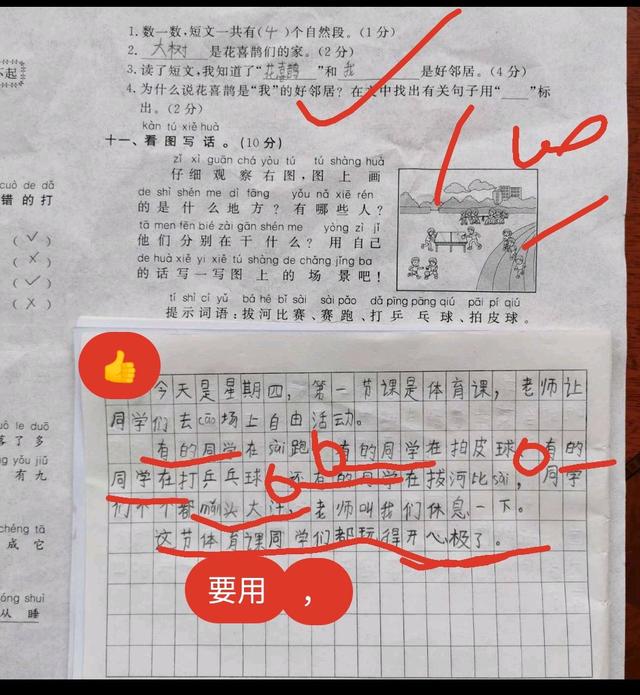 1. 数一数,短文一共有(4)个自然段。(1分)
2. 大树是花喜鹊们的家。(2分)
3. 读了短文,我知道了“花喜鹊”和我是好邻居。(4分)
4. 为什么说花喜鹊是“我”的好邻居?在文中找出有关句子用“___”标
出。(2分)
kàn tú xiě huà
十一、看图写话。(10分)
zǐ xì guān chá yòu tú tú shàng huà
仔细观察右图,图上画
de shì shén me dì fāng yǒu nǎ xiē rén
的是什么地方?有哪些人?
tā men fēn bié zài gān shén me yòng zì jǐ
他们分别在干什么?用自己
de huà xiě yì xiě tú shàng de chǎng jǐng ba
的话写一写图上的场景吧!
tí shì cí yǔ bá hé bǐ sài sài pǎo dǎ pīng pāng qiú pāi pí qiú
提示词语:拔河比赛、赛跑、打乒乓球、拍皮球。
不起
cuò de dǎ
错的打
(✓)
(×)
(✓)
(×)
luò le duō
落了多
yǒu jiǔ
有九
chéng tā
成它
shuì
从睡
👍
今天是星期四,第一节课是体育课,老师让
同学们去cāo场上自由活动。
有的同学在sài跑。有的同学在拍皮球。有的
同学在打乒乓球。还有的同学在拔河比sài,同学
们个个都满头大汗,老师叫我们休息一下。
这节体育课同学们都玩得开心极了。
要用 ,